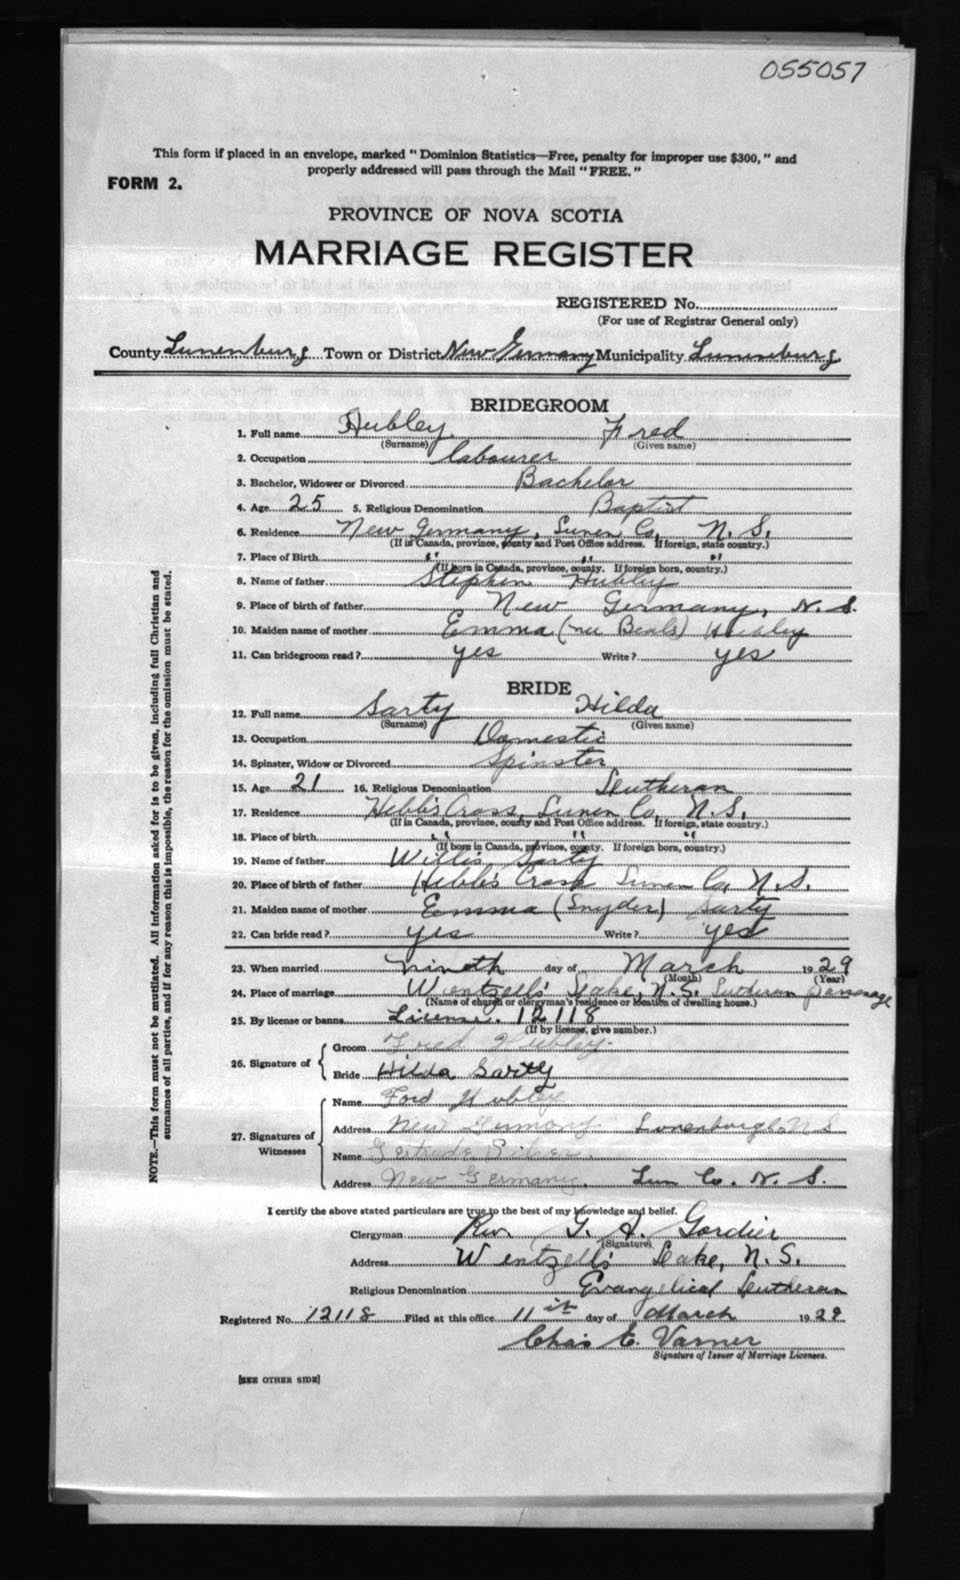 055057
This form if placed in an envelope, marked "Dominion Statistics—Free, penalty for improper use $300," and
properly addressed will pass through the Mail "FREE."
FORM 2.
PROVINCE OF NOVA SCOTIA
MARRIAGE REGISTER
REGISTERED No.
(For use of Registrar General only)
County Lunenburg Town or District New Germany Municipality Lunenburg
BRIDEGROOM
1. Full name Hubley Fred
(Surname) (Given name)
2. Occupation labourer
3. Bachelor, Widower or Divorced Bachelor
4. Age 25 5. Religious Denomination Baptist
6. Residence New Germany, Lunen Co, N. S.
(If in Canada, province, county and Post Office address. If foreign, state country.)
7. Place of Birth " " "
(If born in Canada, province, county. If foreign born, country.)
8. Name of father Stephen Hubley
9. Place of birth of father New Germany, N. S.
10. Maiden name of mother Emma (nee Beals) Hubley
11. Can bridegroom read? yes Write? yes
BRIDE
12. Full name Sarty Hilda
(Surname) (Given name)
13. Occupation Domestic
14. Spinster, Widow or Divorced Spinster
15. Age 21 16. Religious Denomination Lutheran
17. Residence Hebb's Cross, Lunen Co, N. S.
(If in Canada, province, county and Post Office address. If foreign, state country.)
18. Place of birth " " "
(If born in Canada, province, county. If foreign born, country.)
19. Name of father Willis Sarty
20. Place of birth of father Hebb's Cross Lunen Co, N. S.
21. Maiden name of mother Emma (Snyder) Sarty
22. Can bride read? yes Write? yes
23. When married ninth day of March 1929
(Month) (Year)
24. Place of marriage Wentzells' Lake, N. S. Lutheran parsonage
(Name of church or clergyman's residence or location of dwelling house.)
25. By license or banns License. 12118
(If by license, give number.)
26. Signature of
Groom Fred Hubley
Bride Hilda Sarty
27. Signatures of Witnesses
Name Ford Hubley
Address New Germany Lunenburg N S
Name Gertrude
Address New Germany, Lun Co. N. S.
I certify the above stated particulars are true to the best of my knowledge and belief.
Clergyman Rev. G. A. Gordier
(Signature)
Address Wentzells' Lake, N. S.
Religious Denomination Evangelical Lutheran
Registered No. 12118 Filed at this office 11th day of March 1929
Chas E. Varner
Signature of Issuer of Marriage Licenses.
[SEE OTHER SIDE]
NOTE.—This form must not be mutilated. All information asked for is to be given, including full Christian and
surnames of all parties, and if for any reason this is impossible, the reason for the omission must be stated.